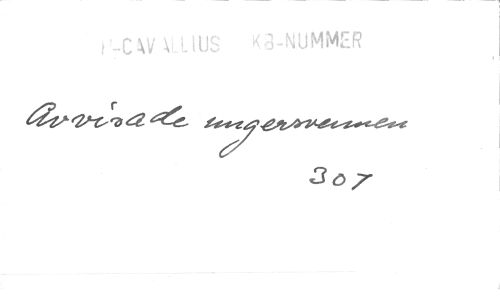 H-CAVALLIUS KB-NUMMER
Avvisade ungersvennen
307